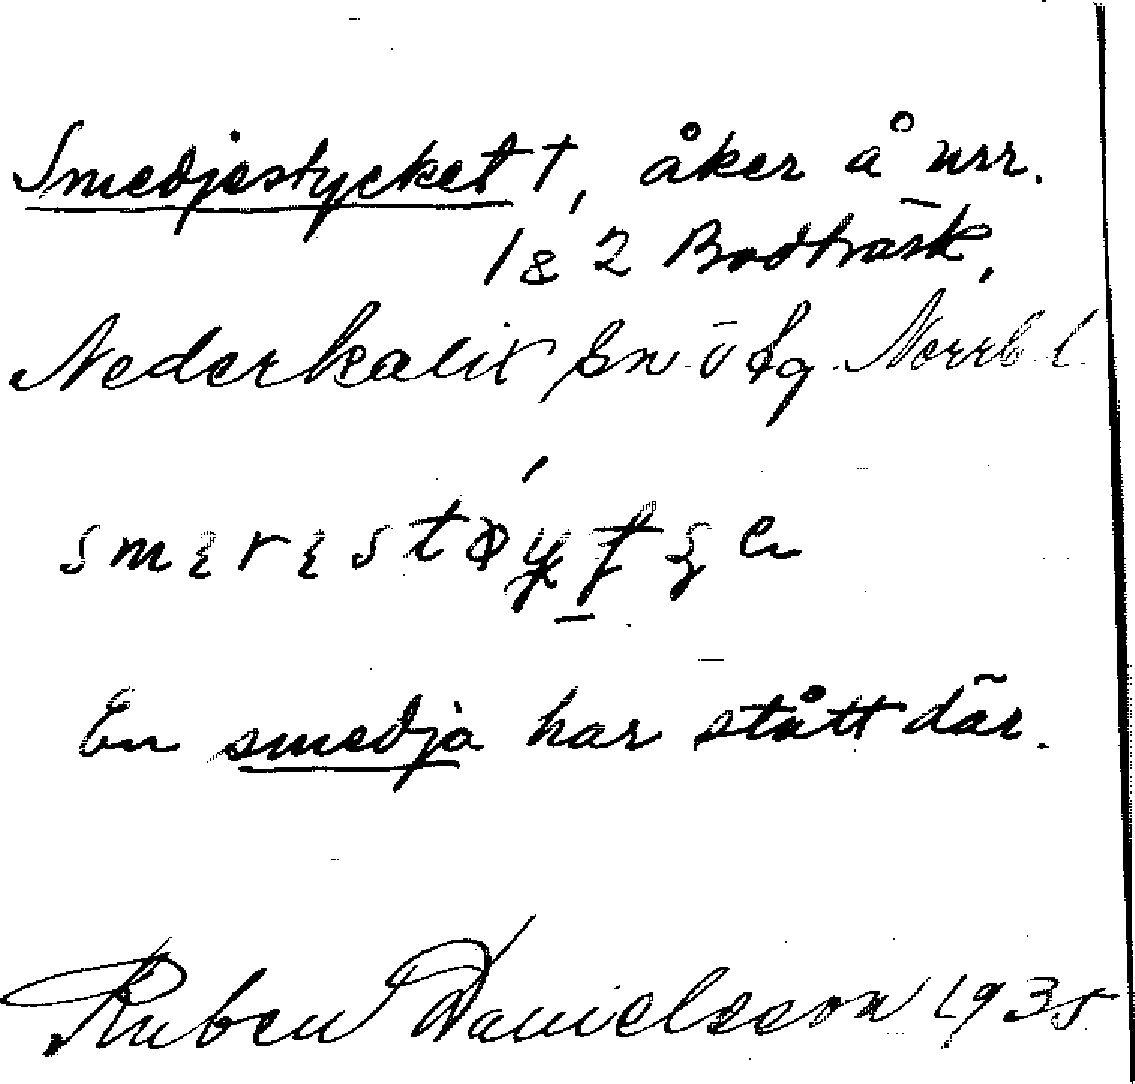 Smedjestycket †, åker å nrr.
1 & 2 Bodträsk,
Nederkalix sn ö fg Norrb l
En smedja har stått där.
Ruben Danielsson 1935